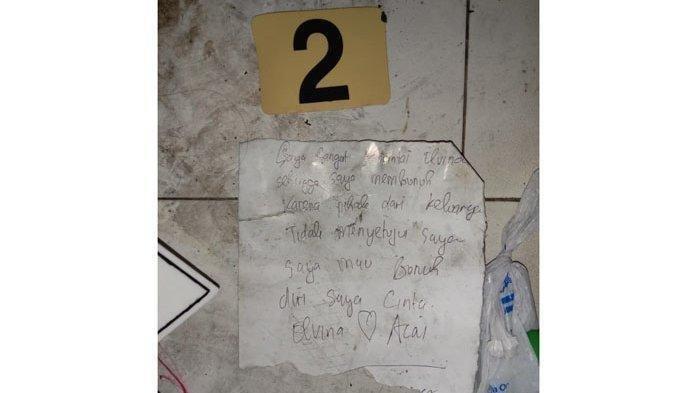 2
Saya Sangat mencintai Elvina
sehingga saya membunuh
Karena pihak dari keluarga
Tidak Menyetujui saya
saya mau Bunuh
diri saya Cinta
Elvina ♡ Acai